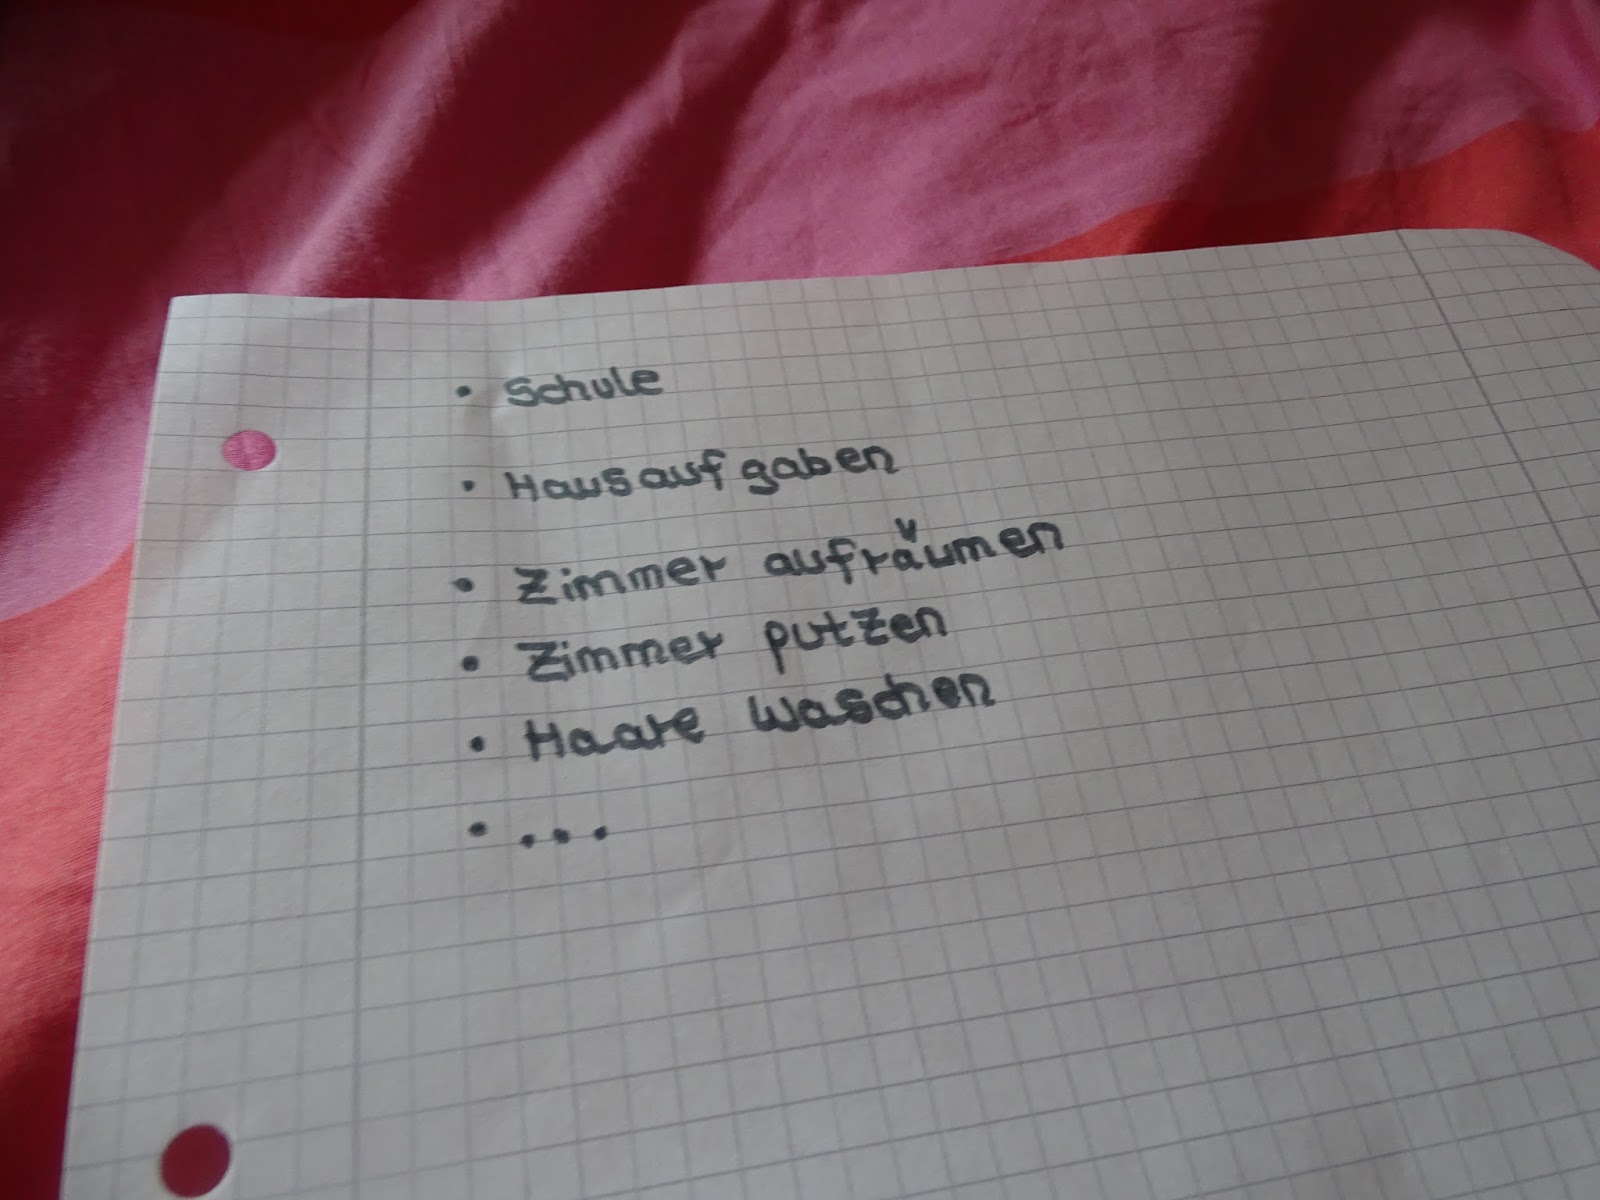 • Schule
• Hausaufgaben
• Zimmer aufräumen
• Zimmer putzen
• Haare waschen
• ...